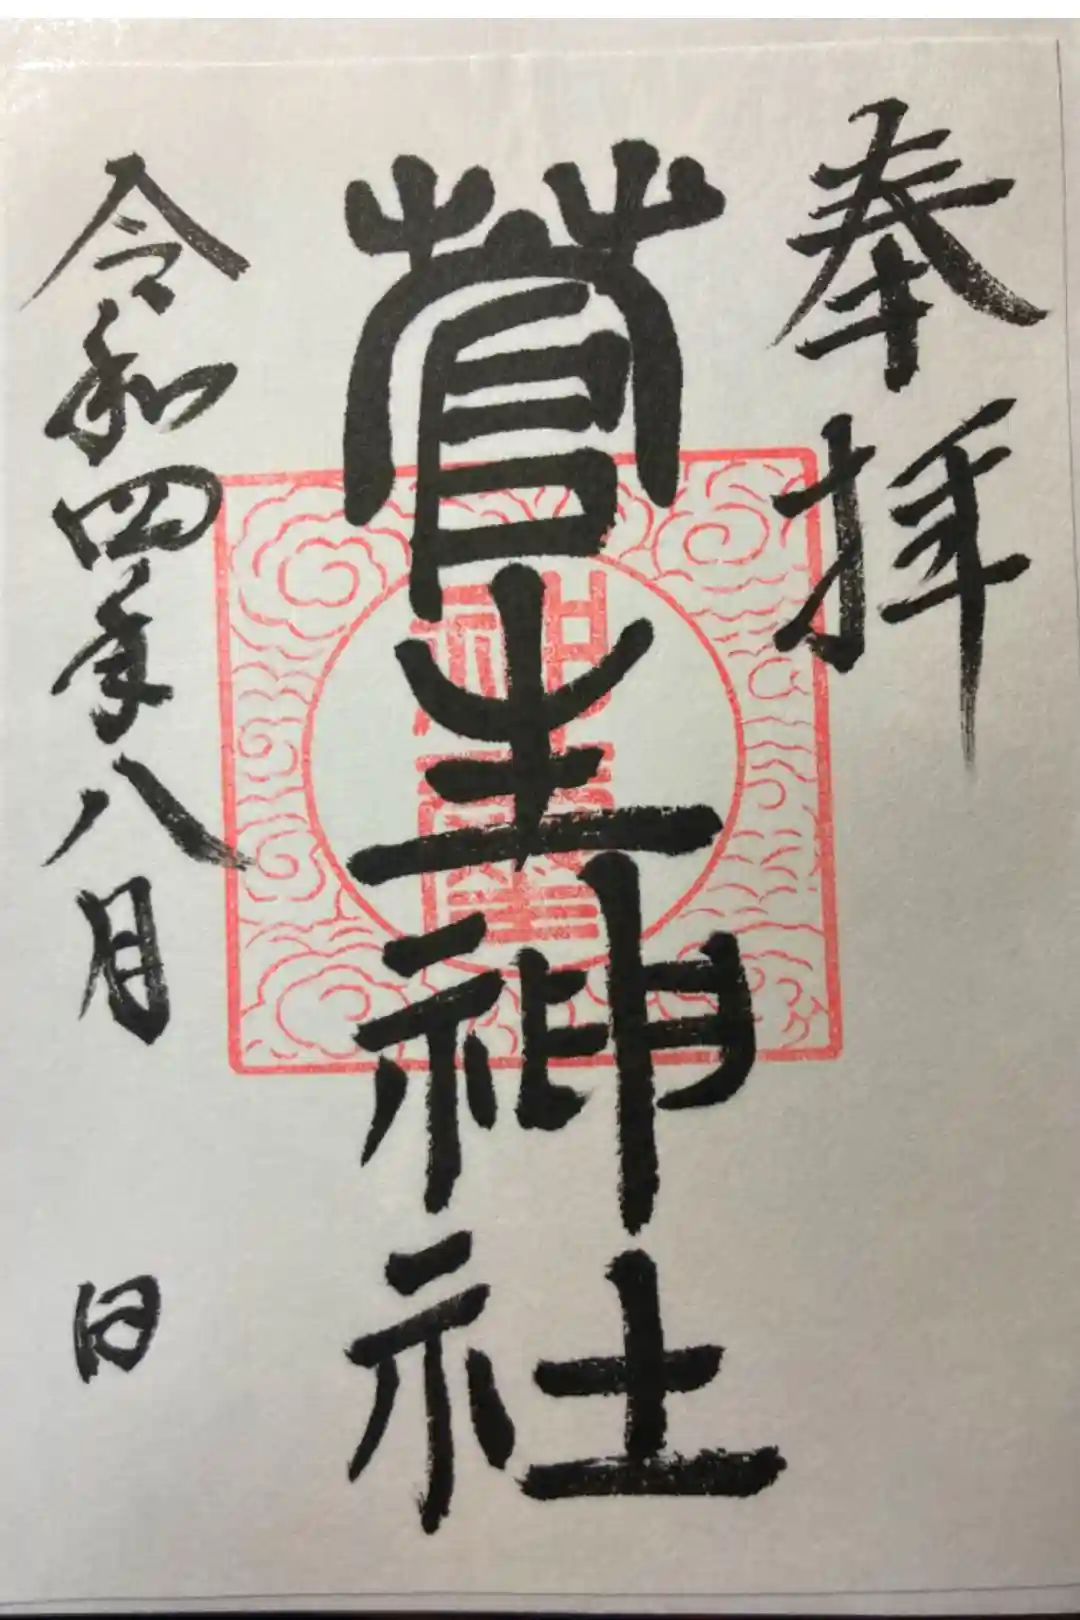 奉拝
菅生神社
令和四年八月 日